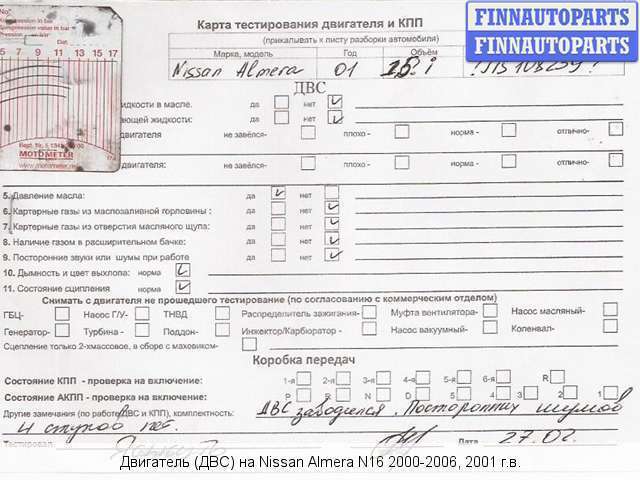 No:
Compression value in bar
Pression en bar
Dat
5 7 9 11 13 15 17
Best. Nr.
MOTOMETER
www.motometer.
FINNAUTOPARTS
FINNAUTOPARTS
Карта тестирования двигателя и КПП
(прикалывать к листу разборки автомобиля)
Марка, модель Год Объём
Nissan Almera 01 1.5i
ДВС
жидкости в масле. да нет
ающей жидкости: да нет
двигателя не завёлся- плохо - норма - отлично-
двигателя: не завёлся- плохо - норма - отлично-
5. Давление масла: да нет
6. Картерные газы из маслозаливной горловины : да нет
7. Картерные газы из отверстия масляного щупа: да нет
8. Наличие газом в расширительном бачке: да нет
9. Посторонние звуки или шумы при работе да нет
10. Дымность и цвет выхлопа: норма
11. Состояние сцепления норма
Снимать с двигателя не прошедшего тестирование (по согласованию с коммерческим отделом)
ГБЦ- Насос Г/У- ТНВД Распределитель зажигания- Муфта вентилятора- Насос масляный-
Генератор- Турбина - Поддон- Инжектор/Карбюратор - Насос вакуумный- Коленвал-
Сцепление только 2-хмассовое, в сборе с маховиком-
Коробка передач
Состояние КПП - проверка на включение: 1-я 2-я 3-я 4-я 5-я 6-я R
Состояние АКПП - проверка на включение: P R N D 4 3 2 1
Другие замечания (по работе ДВС и КПП), комплектность: ДВС заводился. Посторонних шумов
и стуков нет.
Тестировал Дата 27.02.
Двигатель (ДВС) на Nissan Almera N16 2000-2006, 2001 г.в.